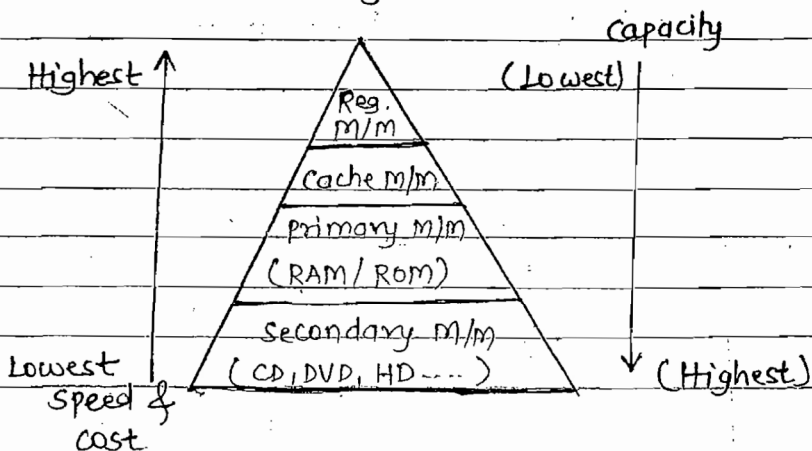 Capacity
Highest
(Lowest)
Reg.
M/M
Cache M/M
Primary M/M
(RAM/ROM)
Secondary M/M
(CD, DVD, HD----)
Lowest
(Highest)
Speed &
Cost